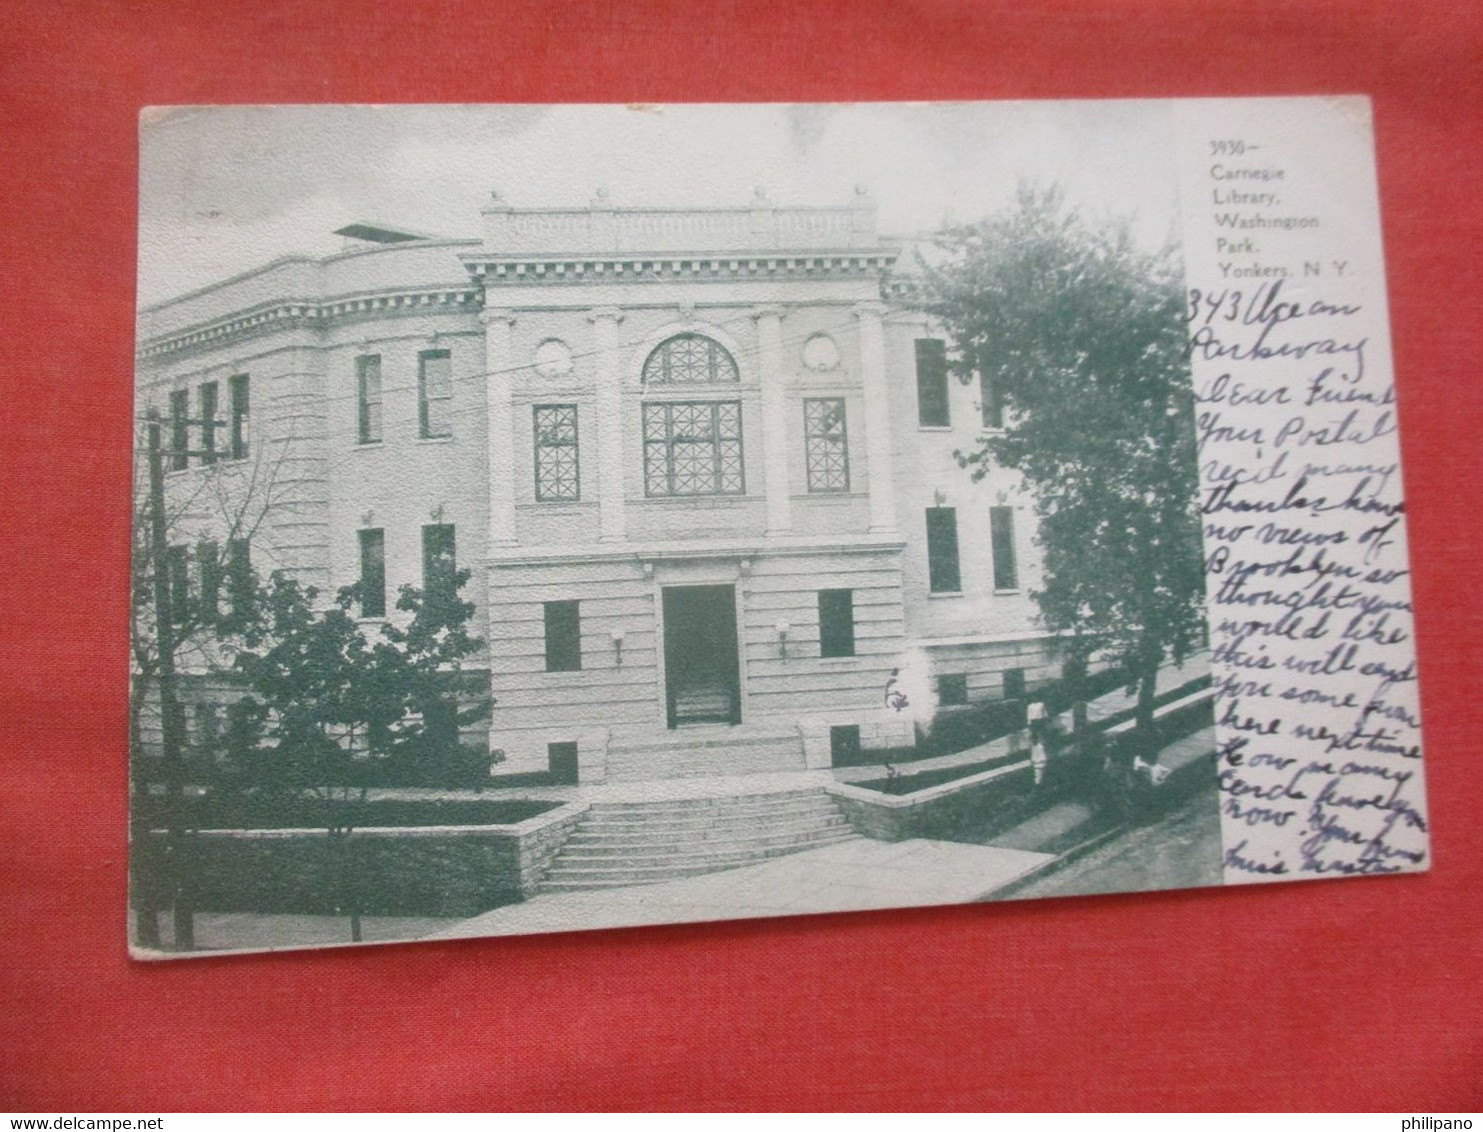 3930—
Carnegie
Library,
Washington
Park.
Yonkers. N Y.
343 Ocean
Parkway
Dear Friend
Your Postal
rec'd many
thanks have
no views of
Brooklyn so
thought you
would like
this will send
you some from
here next time
How many
Cards have you
now Your friend
Miss
philipano